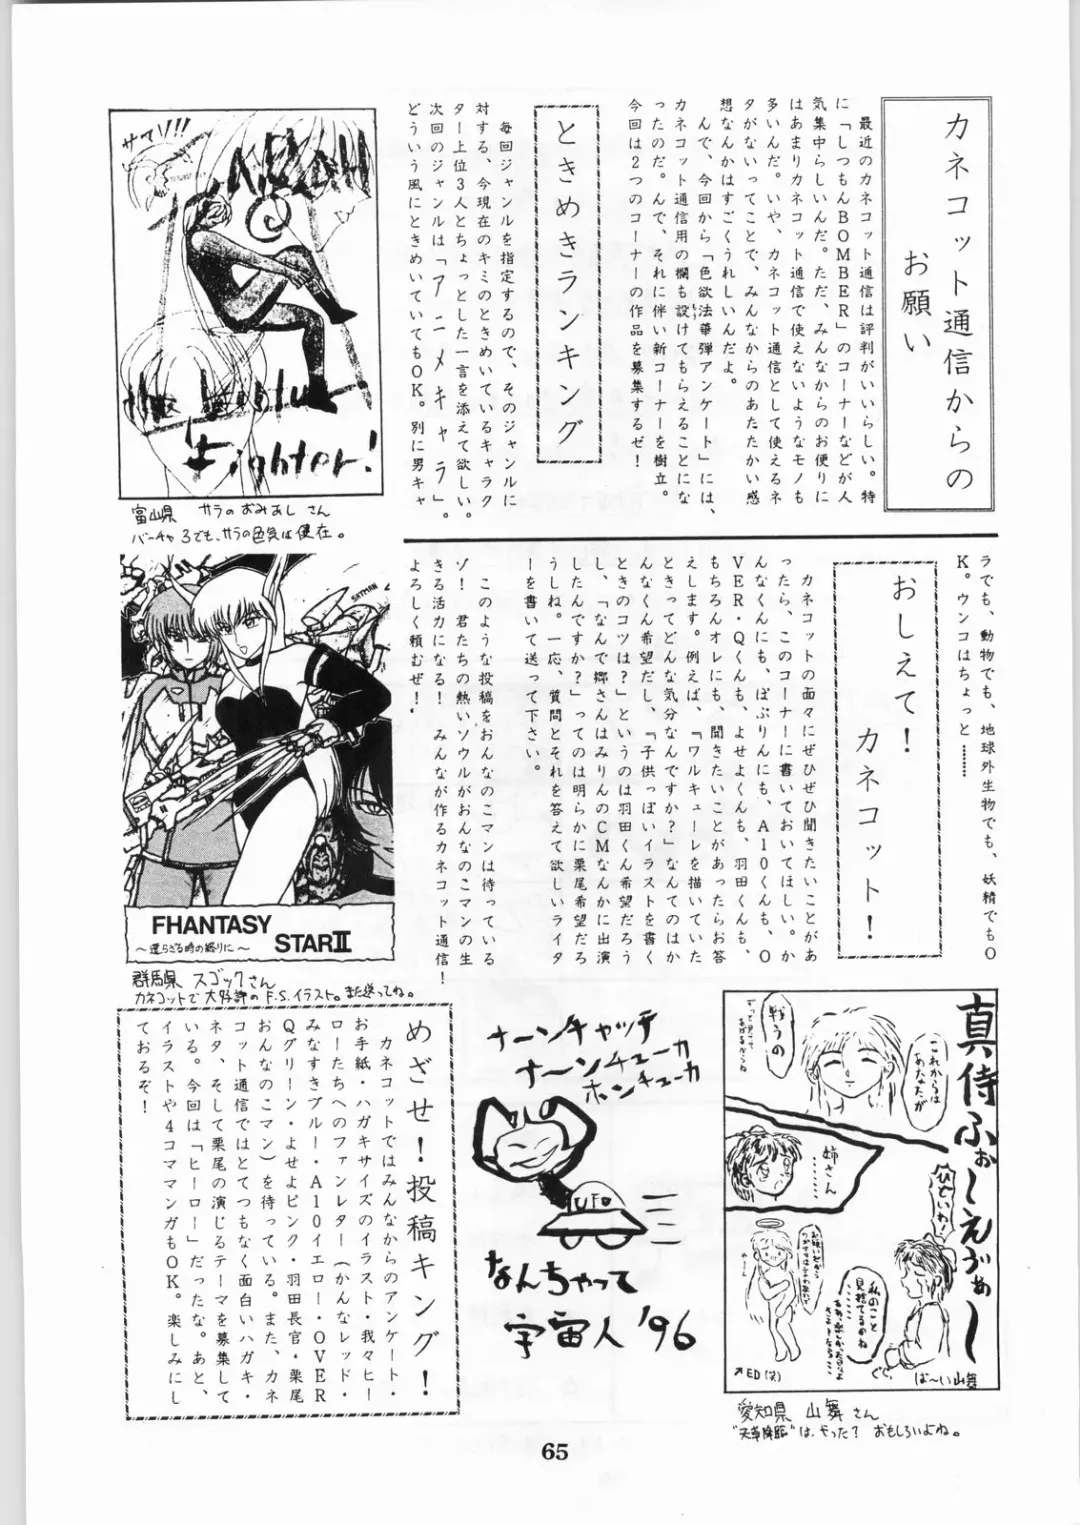 カネコット通信からの
お願い
最近のカネコット通信は評判がいいらしい。特
に「しつもんBOMBER」のコーナーなどが人
気集中らしいんだ。ただ、みんなからのお便りに
はあまりカネコット通信で使えないようなモノも
多いんだ。いや、カネコット通信として使えるネ
タがないってことで、みんなからのあたたかい感
想なんかはすごくうれしいんだよ。
んで、今回から「色欲法華弾アンケート」には、
カネコット通信用の欄も設けてもらえることにな
ったのだ。んで、それに伴い新コーナーを樹立。
今回は2つのコーナーの作品を募集するゼ！
ときめきランキング
毎回ジャンルを指定するので、そのジャンルに
対する、今現在のキミのときめいているキャラク
ター上位3人とちょっとした一言を添えて欲しい。
次回のジャンルは「アニメキャラ」。
どういう風にときめいていてもOK。別に男キャ
ラでも、動物でも、地球外生物でも、妖精でもO
K。ウンコはちょっと………
おしえて！
カネコット！
カネコットの面々にぜひぜひ聞きたいことがあ
ったら、このコーナーに書いておいてほしい。か
んなくんにも、ぽぷりんにも、A10くんも、O
VER・Qくんも、よせよくんも、羽田くんも、
もちろんオレにも、聞きたいことがあったらお答
えします。例えば、『ワルキューレを描いていた
ときってどんな気分なんですか？』なんてのはか
んなくん希望だし、『子供っぽいイラストを書く
ときのコツは？』というのは羽田くん希望だろう
し、「なんで郷さんはみりんのCMなんかに出演
したんですか？」ってのは明らかに栗尾希望だろ
うしね。一応、質問とそれを答えて欲しいライタ
ーを書いて送って下さい。
このような投稿をおんなのこマンは待っている
ゾ！　君たちの熱いソウルがおんなのこマンの生
きる活力になる！　みんなが作るカネコット通信！
よろしく頼むぜ！
サマソ!!!
the double
Fighter!
富山県　サラのおみあし さん
バーチャ3でも、サラの色気は健在。
SATMAN
FHANTASY
STARⅡ
～還らざる時の終りに～
群馬県 スゴックさん
カネコットで大好評のF.S.イラスト。また送ってね。
めざせ！投稿キング！
カネコットではみんなからのアンケート・
お手紙・ハガキサイズのイラスト・我々ヒー
ローたちへのファンレター（かんなレッド・
みなすきブルー・A10イエロー・OVER
Qグリーン・よせよピンク・羽田長官・栗尾
おんなのこマン）を待っている。また、カネ
コット通信ではとてつもなく面白いハガキ・
ネタ、そして栗尾の演じるテーマを募集して
いる。今回は「ヒーロー」だったな。あと、
イラストや4コママンガもOK。楽しみにし
ておるぞ！
ナーンチャッテ
ナ～ンチューカ
ホンチューカ
UFO
なんちゃって
宇宙人 '96
真侍ふぉ～えヴぁ～
これからは
あなたが
戦うの
姉さん
……
ひどいわ！
私のこと
見捨てるのね
……
ぐぐ
↗ED(笑)
ば～い山舞
愛知県 山舞さん
"天草降臨"は、やった？ おもしろいよね。
65